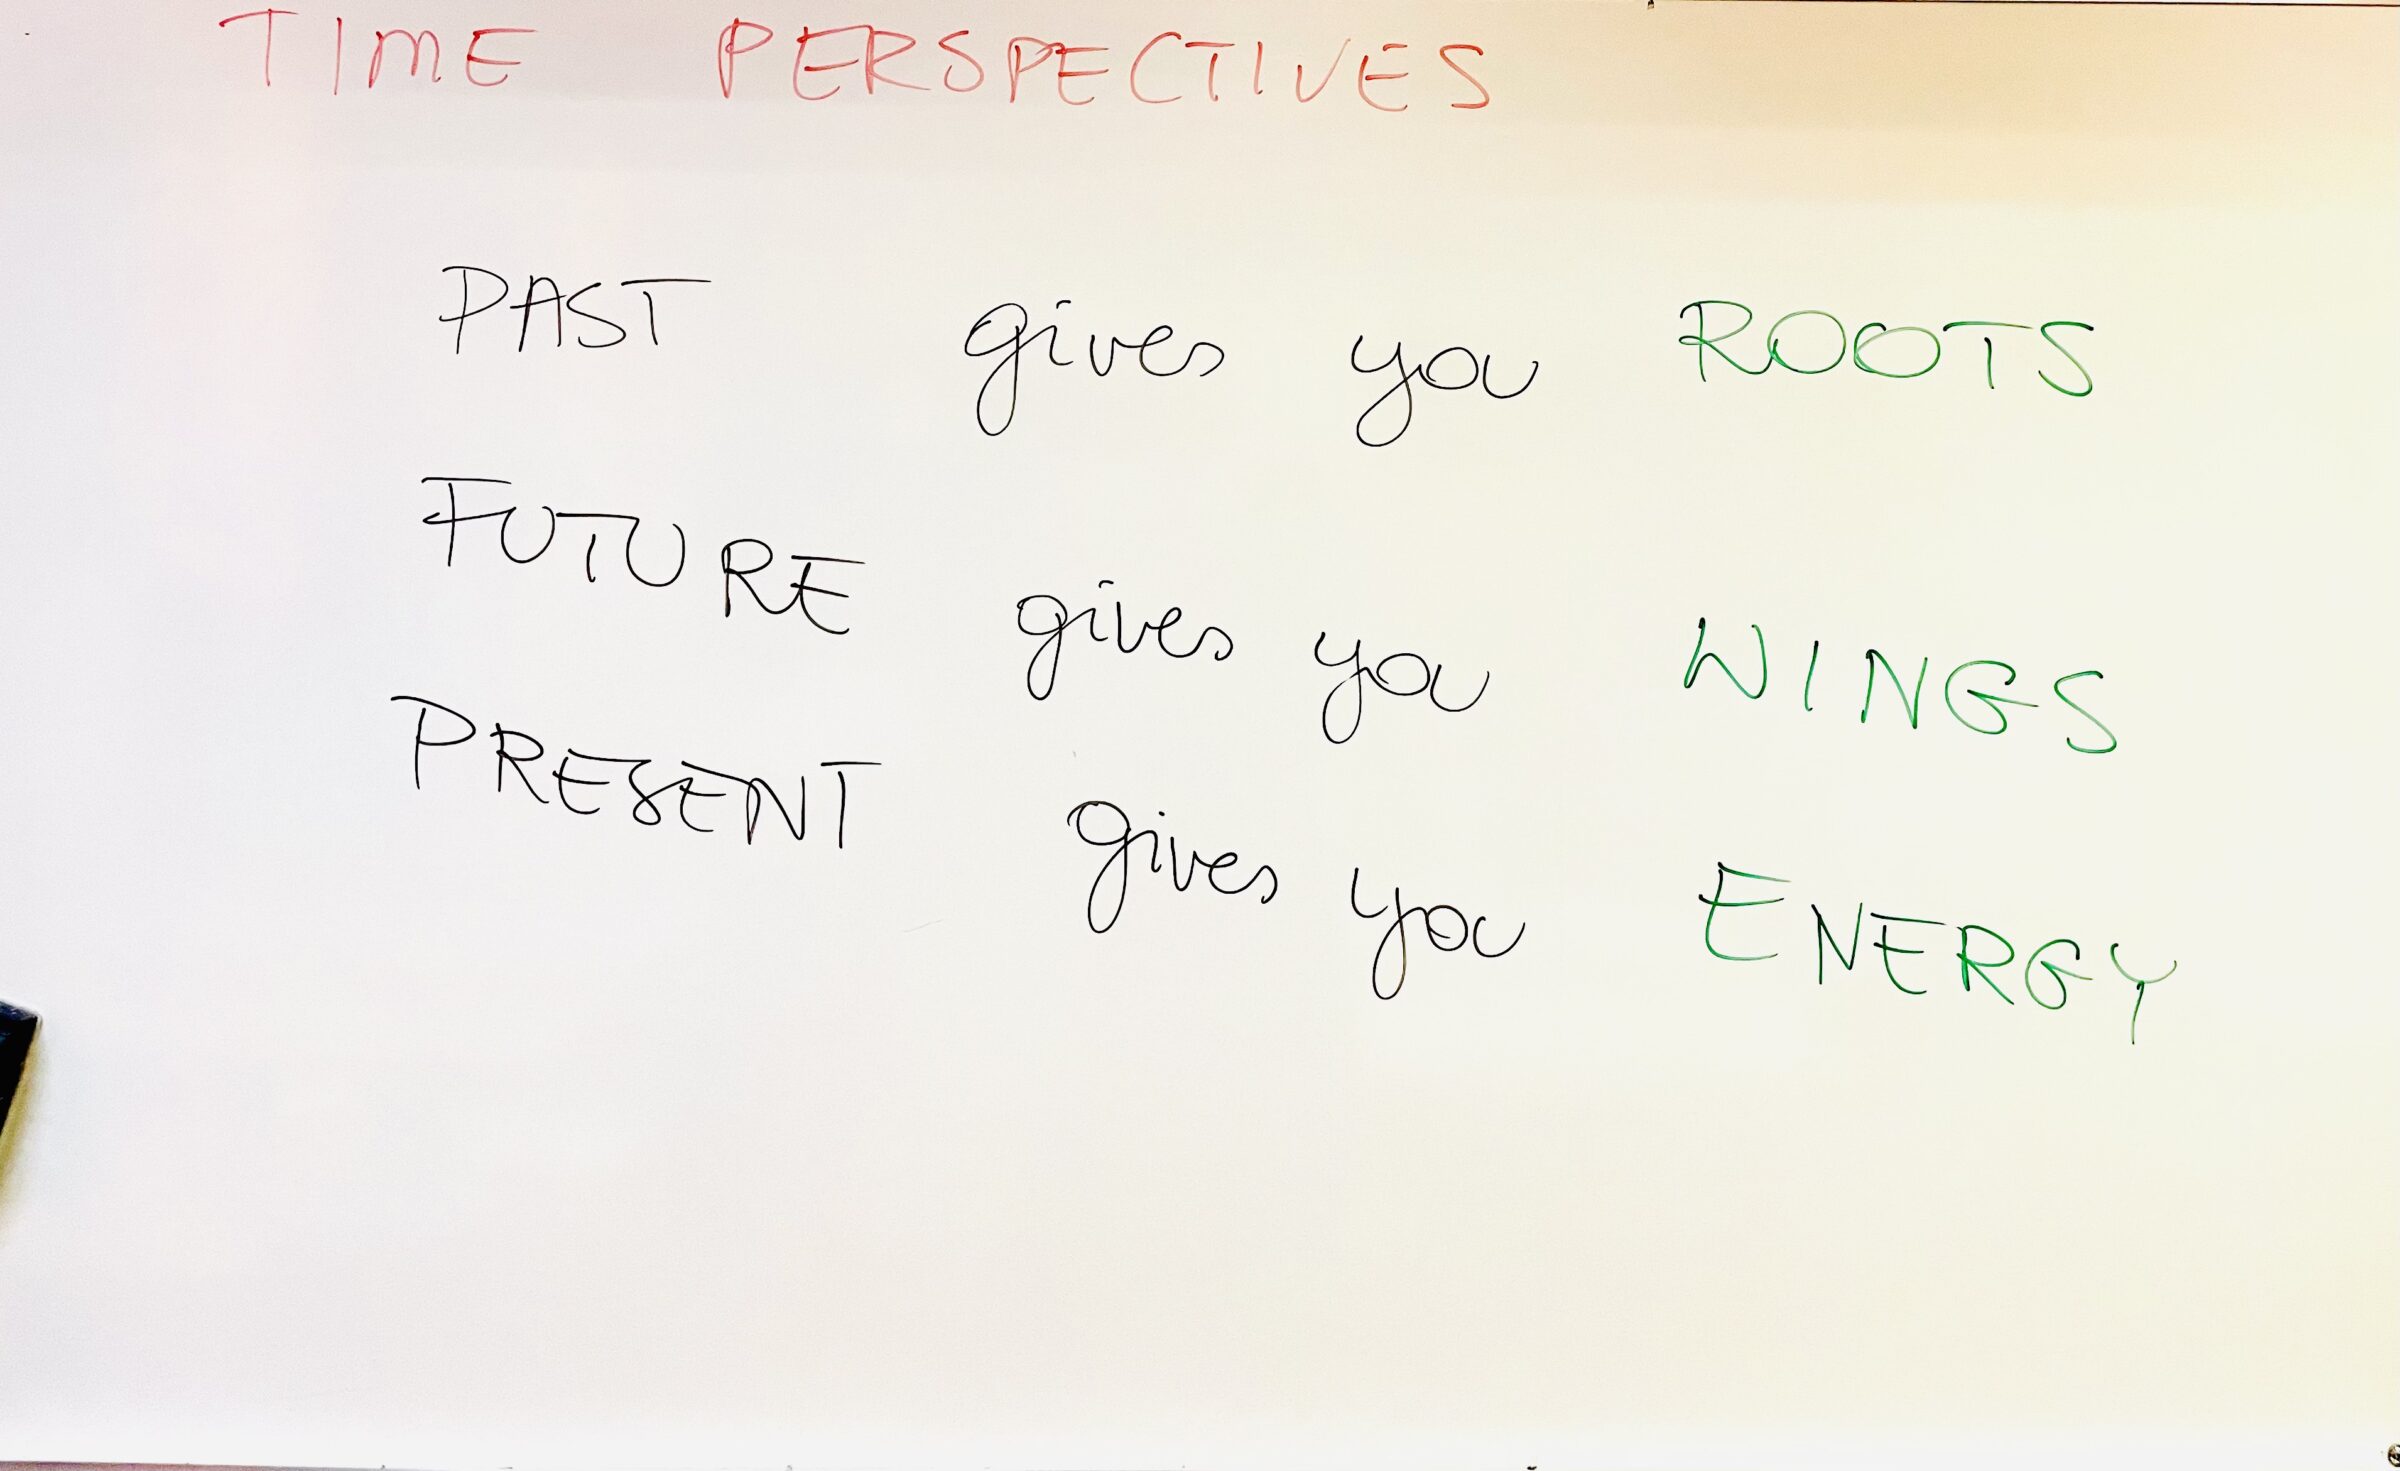 TIME PERSPECTIVES
PAST gives you ROOTS
FUTURE gives you WINGS
PRESENT gives you ENERGY